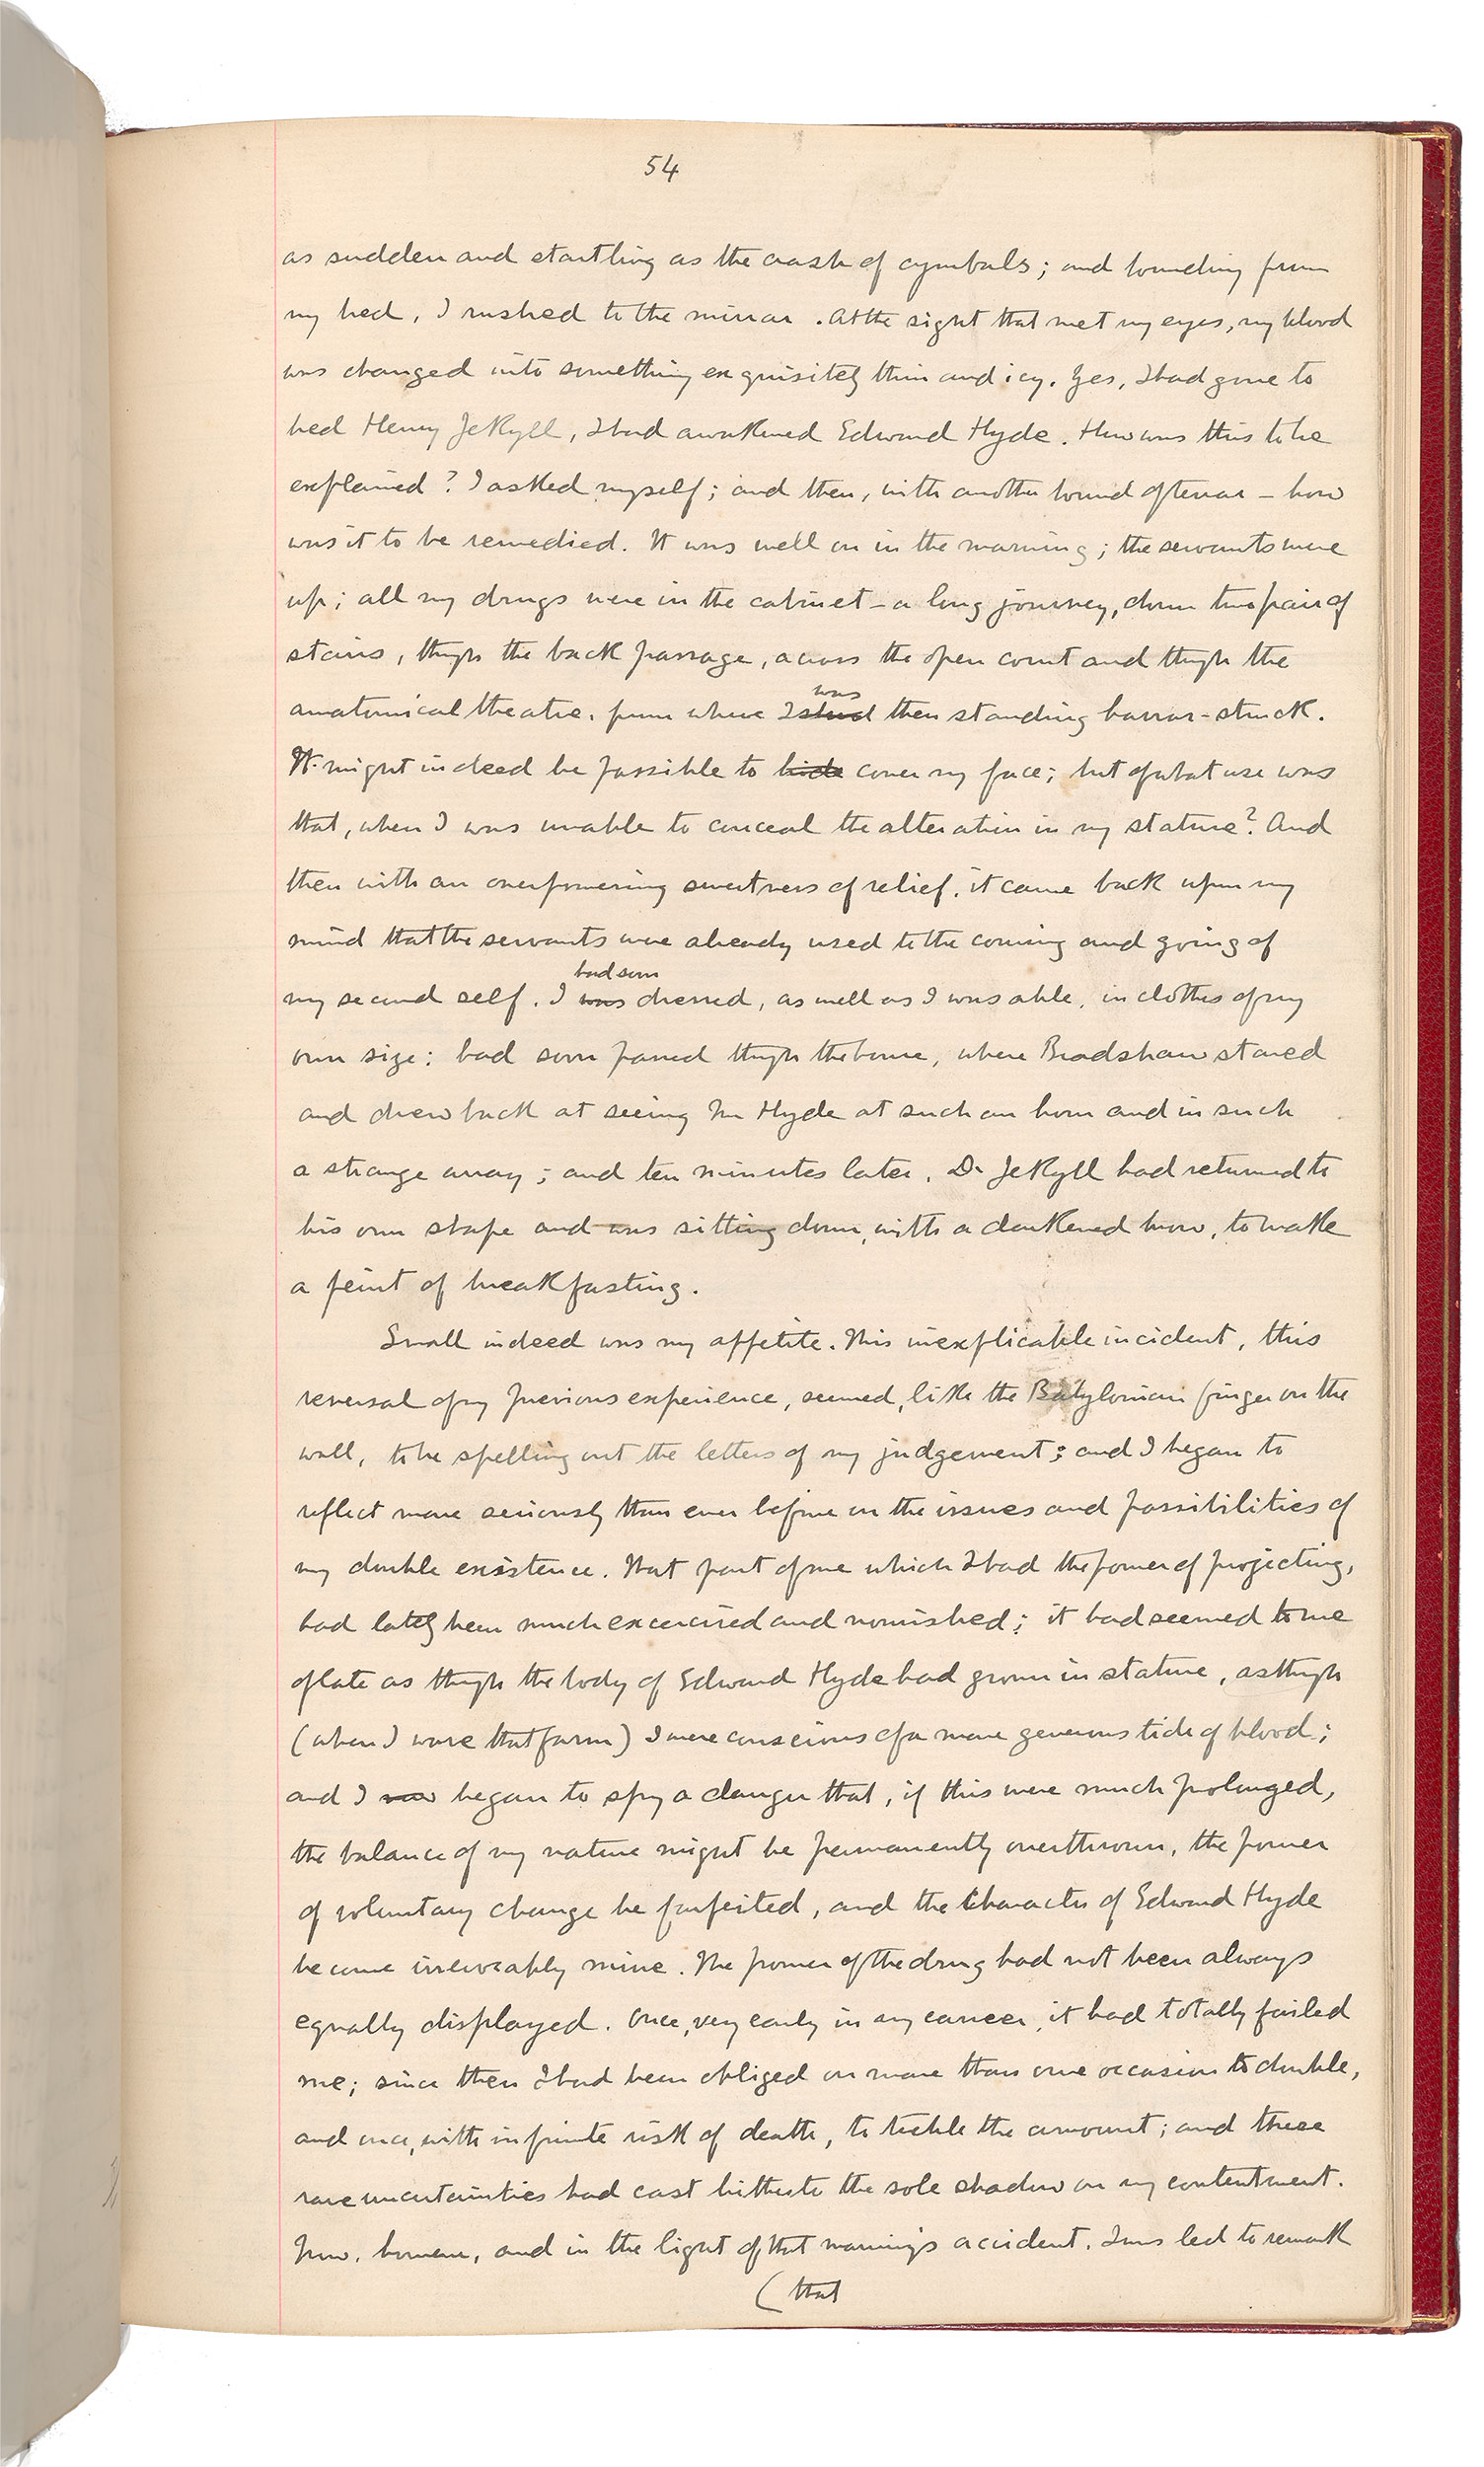 54
as sudden and startling as the crash of cymbals; and bounding from
my bed, I rushed to the mirror. At the sight that met my eyes, my blood
was changed into something exquisitely thin and icy. Yes, I had gone to
bed Henry Jekyll, I had awakened Edward Hyde. How was this to be
explained? I asked myself; and then, with another bound of terror – how
was it to be remedied. It was well on in the morning; the servants were
up; all my drugs were in the cabinet – a long journey, down two pair of
stairs, thrgh the back passage, across the open court and thrgh the
was
anatomical theatre, from where I stood then standing horror-struck.
It might indeed be possible to hide cover my face; but of what use was
that, when I was unable to conceal the alteration in my stature? And
then with an overpowering sweetness of relief, it came back upon my
mind that the servants were already used to the coming and going of
had soon
my second self. I was dressed, as well as I was able, in clothes of my
own size: had soon passed thrgh the house, where Bradshaw stared
and drew back at seeing Mr Hyde at such an hour and in such
a strange array; and ten minutes later, Dr Jekyll had returned to
his own shape and was sitting down, with a darkened brow, to make
a feint of breakfasting.
Small indeed was my appetite. This inexplicable incident, this
reversal of my previous experience, seemed, like the Babylonian finger on the
wall, to be spelling out the letters of my judgement; and I began to
reflect more seriously than ever before on the issues and possibilities of
my double existence. That part of me which I had the power of projecting,
had lately been much excercised and nourished; it had seemed to me
of late as thogh the body of Edward Hyde had grown in stature, as thogh
(when I wore that form) I were conscious of a more generous tide of blood;
and I now began to spy a danger that, if this were much prolonged,
the balance of my nature might be permanently overthrown, the power
of voluntary change be forfeited, and the character of Edward Hyde
become irrevocably mine. The power of the drug had not been always
equally displayed. Once, very early in my career, it had totally failed
me; since then I had been obliged on more than one occasion to double,
and once, with infinite risk of death, to treble the amount; and these
rare uncertainties had cast hitherto the sole shadow on my contentment.
Now, however, and in the light of that morning's accident, I was led to remark
(that